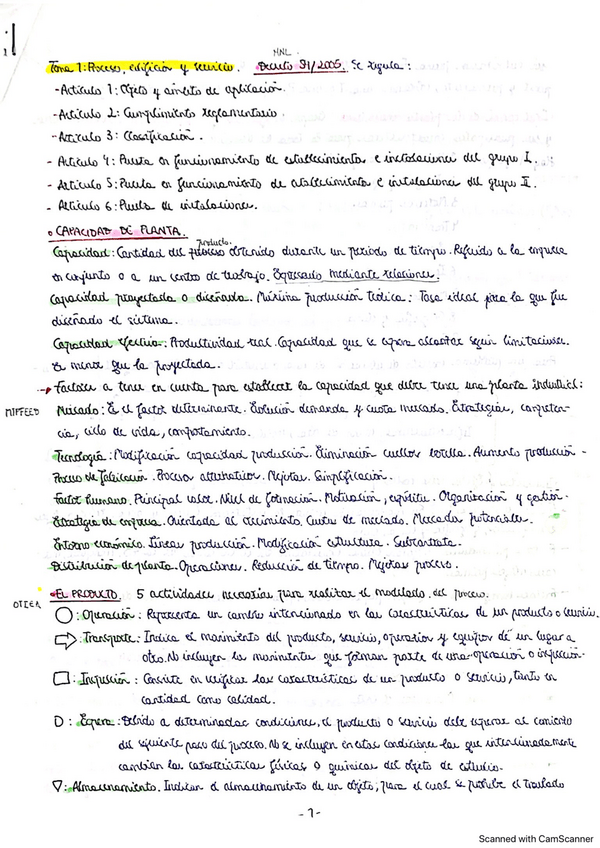 MNL.
Tema 1: Proceso, edificios y servicio. Decreto 91/2005. Se regula:
- Artículo 1: Objeto y ámbito de aplicación.
- Artículo 2: Cumplimiento reglamentario.
- Artículo 3: Clasificación.
- Artículo 4: Puesta en funcionamiento de establecimientos e instalaciones del grupo I.
- Artículo 5: Puesta en funcionamiento de establecimientos e instalaciones del grupo II.
- Artículo 6: Puesta de instalaciones.
CAPACIDAD DE PLANTA.
producto.
Capacidad: Cantidad del proceso obtenido durante un periodo de tiempo. Referido a la empresa
en conjunto o a un centro de trabajo. Expresado mediante relaciones.
Capacidad proyectada o diseñada. Máxima producción teórica: Tasa ideal para la que fue
diseñado el sistema.
Capacidad efectiva: Productividad real. Capacidad que se espera alcanzar según limitaciones.
Es menor que la proyectada.
Factores a tener en cuenta para establecer la capacidad que debe tener una planta industrial:
MTPFEED Mercado: Es el factor determinante. Evolución demanda y cuota mercado. Estrategias, competen-
cia, ciclo de vida, comportamiento.
Tecnología: Modificación capacidad producción. Eliminación cuellos botella. Aumento producción.
Proceso de fabricación. Procesos alternativos. Mejoras. Simplificación.
Factor humano. Principal valor. Nivel de formación. Motivación, espíritu. Organización y gestión.
Estrategia de empresa. Orientada al crecimiento. Cuotas de mercado. Mercados potenciales.
Entorno económico. Líneas producción. Modificación estructura. Subcontrata.
Distribución de planta. Operaciones. Reducción de tiempo. Mejoras proceso.
EL PRODUCTO. 5 actividades necesarias para realizar el modelado del proceso.
OTIEA
: Operación: Representa un cambio intencionado en las características de un producto o servicio.
: Transporte: Indica el movimiento del producto, servicio, operarios y equipos de un lugar a
otro. No incluyen los movimientos que forman parte de una operación o inspección.
: Inspección: Consiste en verificar las características de un producto o servicio, tanto en
cantidad como calidad.
D: Espera: Debido a determinadas condiciones, el producto o servicio debe esperar al comienzo
del siguiente paso del proceso. No se incluyen en estas condiciones las que intencionadamente
cambian las características físicas o químicas del objeto de estudio.
: Almacenamiento. Indican el almacenamiento de un objeto, para el cual se prohíbe el traslado
- 1 -
Scanned with CamScanner